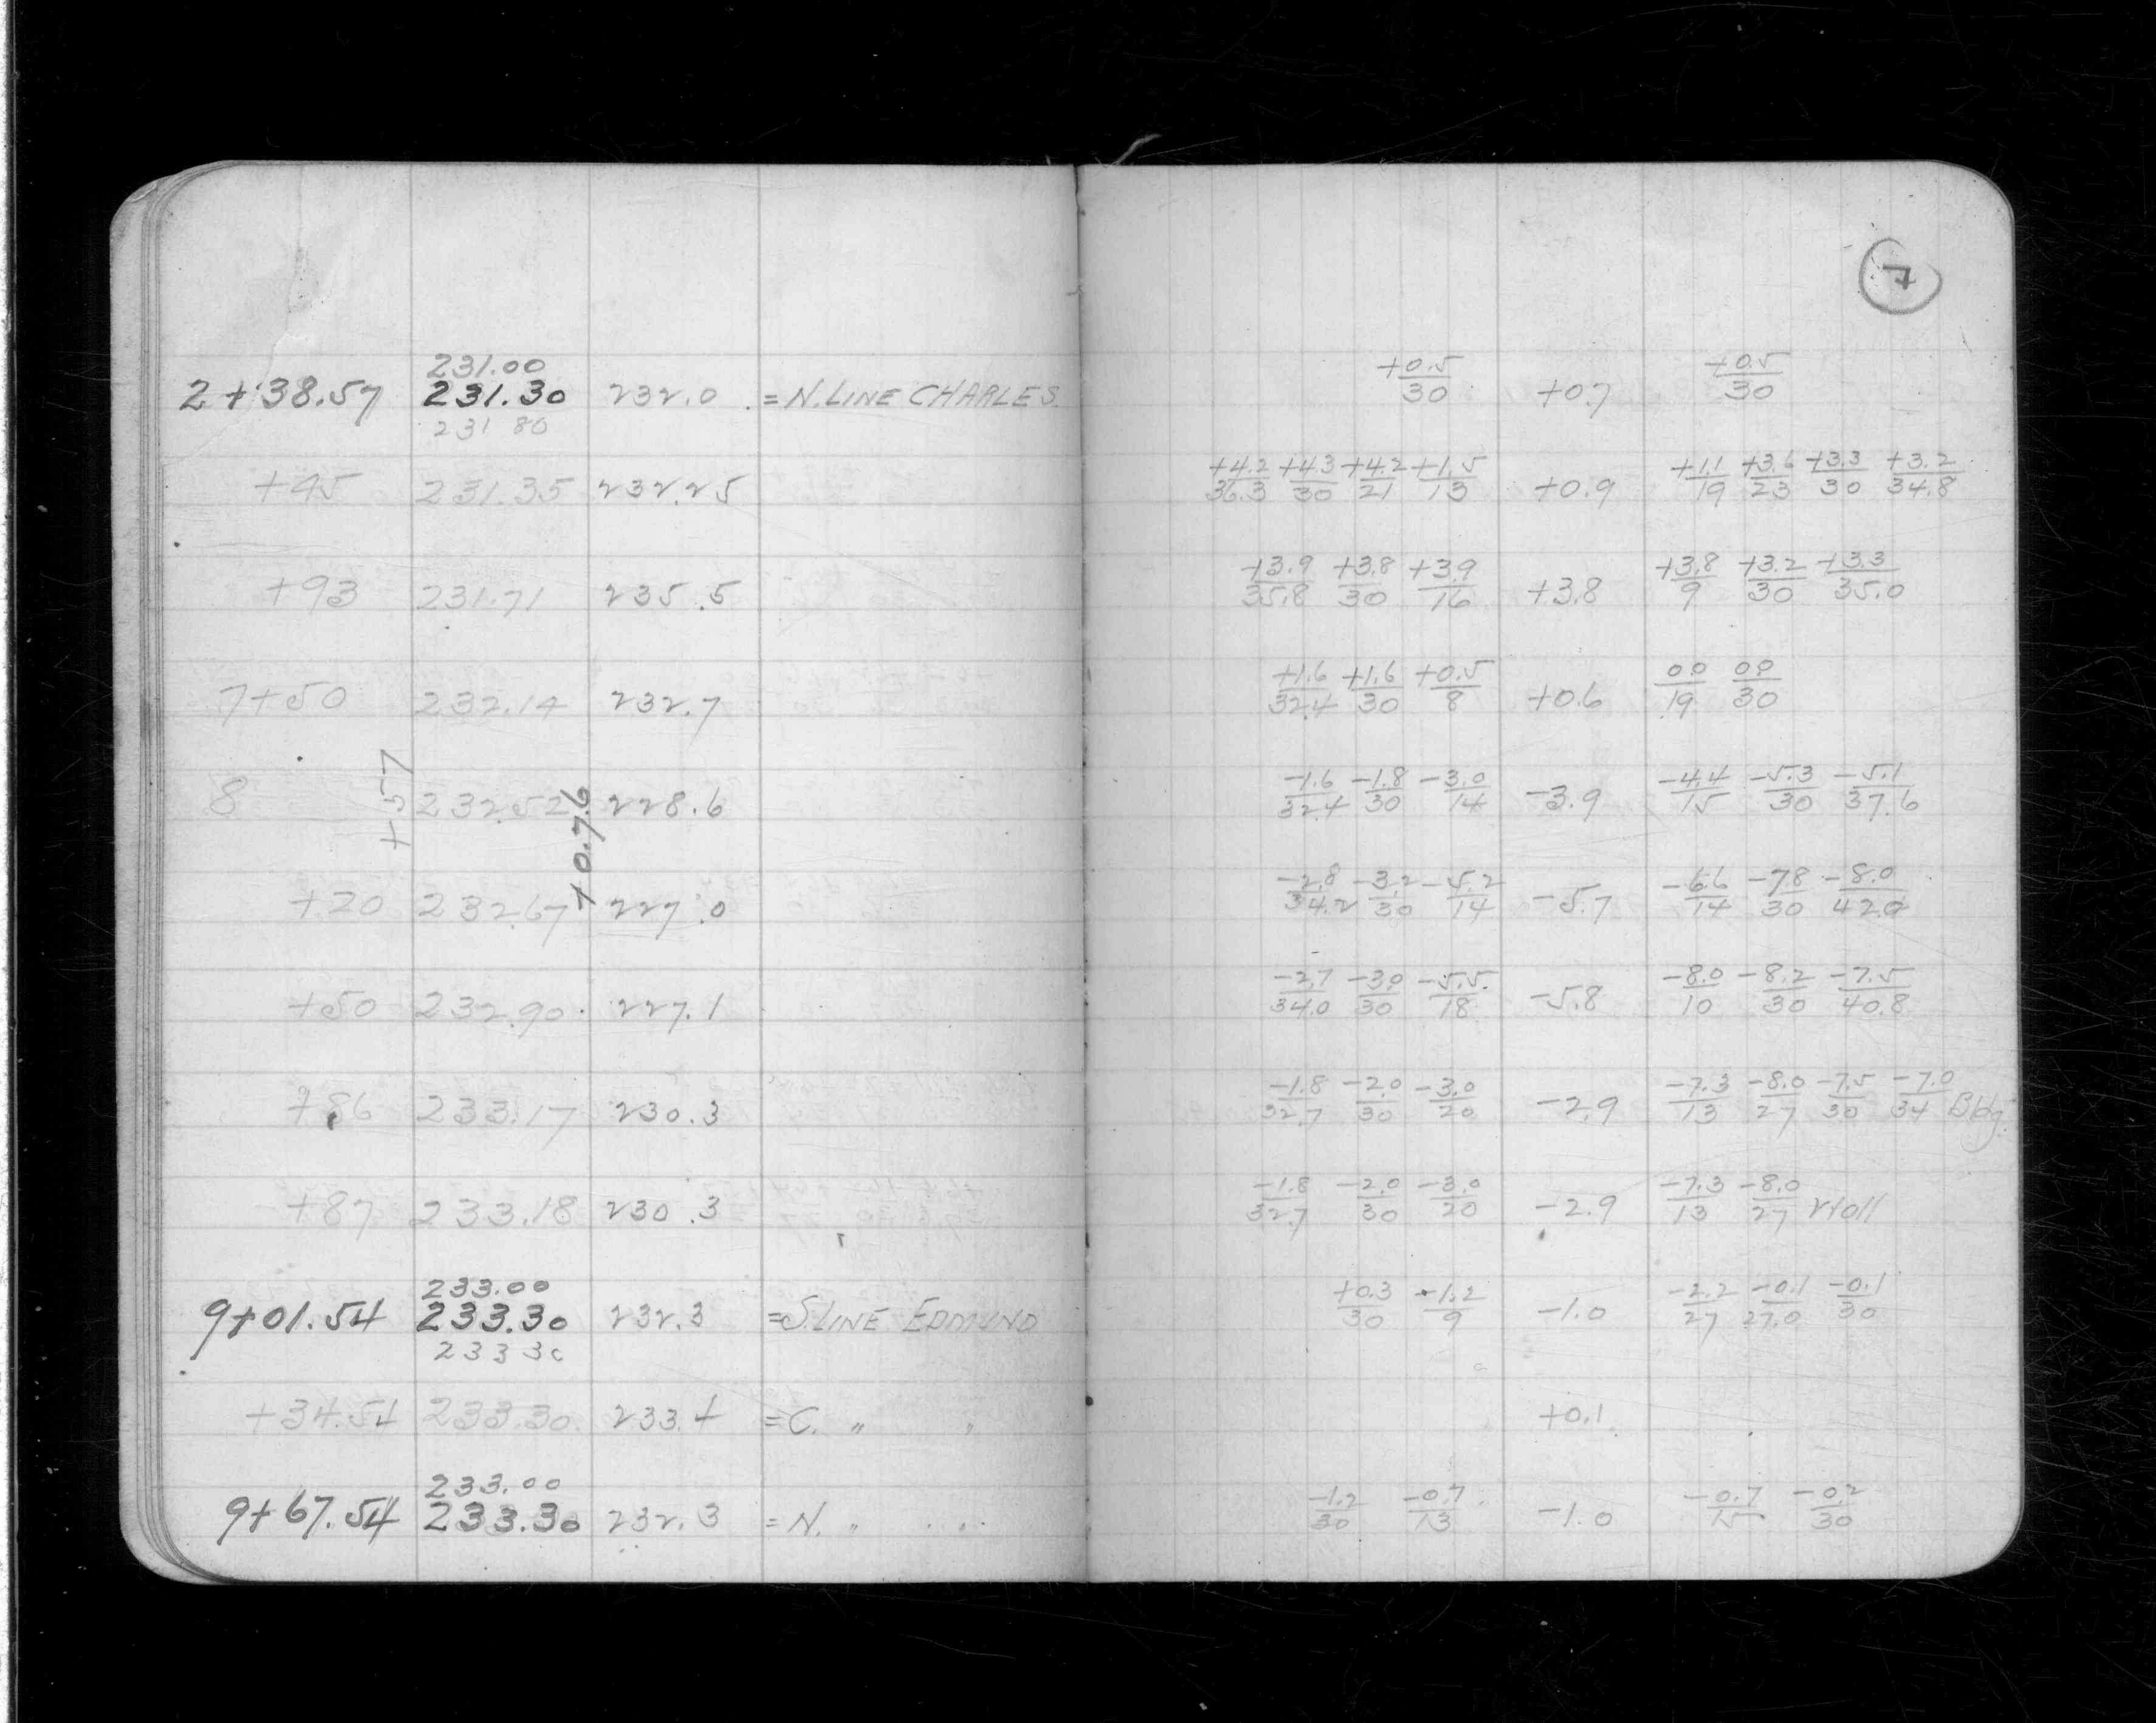 7
231.00
2+38.57 231.30 232.0 =N.LINE CHARLES +0.5/30 +0.7 +0.5/30
231 80
+45 231.35 232.25 +4.2/36.3 +4.3/30 +4.2/21 +1.5/13 +0.9 +1.1/19 +3.6/23 +3.3/30 +3.2/34.8
+93 231.71 235.5 +3.9/35.8 +3.8/30 +3.9/16 +3.8 +3.8/9 +3.2/30 +3.3/35.0
7+50 232.14 232.7 +1.6/32.4 +1.6/30 +0.5/8 +0.6 0.0/19 0.0/30
8 232.52 228.6 -1.6/32.4 -1.8/30 -3.0/14 -3.9 -4.4/15 -5.3/30 -5.1/37.6
+.57
+0.7.6
+20 232.67 227.0 -2.8/34.2 -3.2/30 -5.2/14 -5.7 -6.6/14 -7.8/30 -8.0/42.0
+50 232.90 227.1 -2.7/34.0 -3.0/30 -5.5/18 -5.8 -8.0/10 -8.2/30 -7.5/40.8
+86 233.17 230.3 -1.8/32.7 -2.0/30 -3.0/20 -2.9 -7.3/13 -8.0/27 -7.5/30 -7.0/34 Bldg.
+87 233.18 230.3 -1.8/32.7 -2.0/30 -3.0/20 -2.9 -7.3/13 -8.0/27
233.00
9+01.54 233.30 232.3 =S.LINE EDMUND +0.3/30 -1.2/9 -1.0 -2.2/27 -0.1/27.0 -0.1/30
233 30
+34.54 233.30 233.4 =C. " " +0.1
233.00
9+67.54 233.30 232.3 =N. " " -1.2/30 -0.7/13 -1.0 -0.7/15 -0.2/30